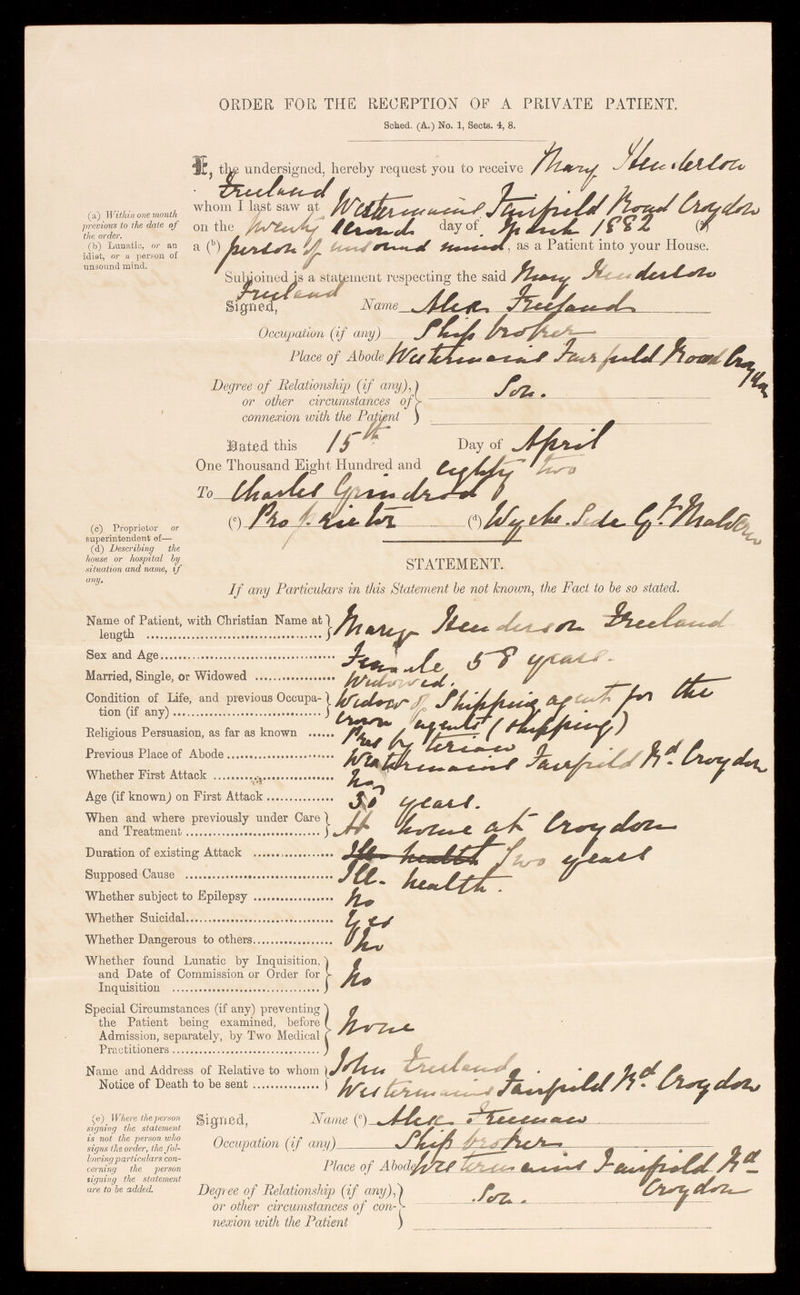 ORDER FOR THE RECEPTION OF A PRIVATE PATIENT.
Sched. (A.) No. 1, Sects. 4, 8.
I, the undersigned, hereby request you to receive Mary Henderson
Freeland
whom I last saw at Westermains Fairfield Road Croydon
on the twenty second day of March 1882 (a)
a (b) person of unsound mind, as a Patient into your House.
Subjoined is a statement respecting the said Mary Henderson
Freeland
Signed, Name Alex. Freeland
Occupation (if any) Ship broker
Place of Abode Westermains Fairfield Road Croydon
Degree of Relationship (if any),
or other circumstances of
connexion with the Patient
Son.
Dated this 15th Day of April
One Thousand Eight Hundred and eighty two
To Charles Grindrod
(c) Proprietor (d) Wyche Side Gt. Malvern
(a) Within one month
previous to the date of
the order.
(b) Lunatic, or an
idiot, or a person of
unsound mind.
(c) Proprietor or
superintendent of—
(d) Describing the
house or hospital by
situation and name, if
any.
STATEMENT.
If any Particulars in this Statement be not known, the Fact to be so stated.
Name of Patient, with Christian Name at
length
Mary Henderson Freeland
Sex and Age Female 58 years.
Married, Single, or Widowed Widowed.
Condition of Life, and previous Occupa-
tion (if any)
Widow of Shipping agent for the
crown agents (shipping)
Religious Persuasion, as far as known Presbyterian
Previous Place of Abode Westermains Fairfield Rd. Croydon
Whether First Attack No
Age (if known) on First Attack 50 years.
When and where previously under Care
and Treatment
At home at Croydon
Duration of existing Attack Ill health Two years
Supposed Cause Ill. health.
Whether subject to Epilepsy No
Whether Suicidal Yes
Whether Dangerous to others No
Whether found Lunatic by Inquisition,
and Date of Commission or Order for
Inquisition
No
Special Circumstances (if any) preventing
the Patient being examined, before
Admission, separately, by Two Medical
Practitioners
None
Name and Address of Relative to whom
Notice of Death to be sent
John Freeland
Westermains Fairfield Rd. Croydon
(e) Where the person
signing the statement
is not the person who
signs the order, the fol-
lowing particulars con-
cerning the person
signing the statement
are to be added.
Signed, Name (e) Alex.
Occupation (if any) Ship broker
Place of Abode Westermains Fairfield Rd
Croydon
Degree of Relationship (if any),
or other circumstances of con-
nexion with the Patient
Son.